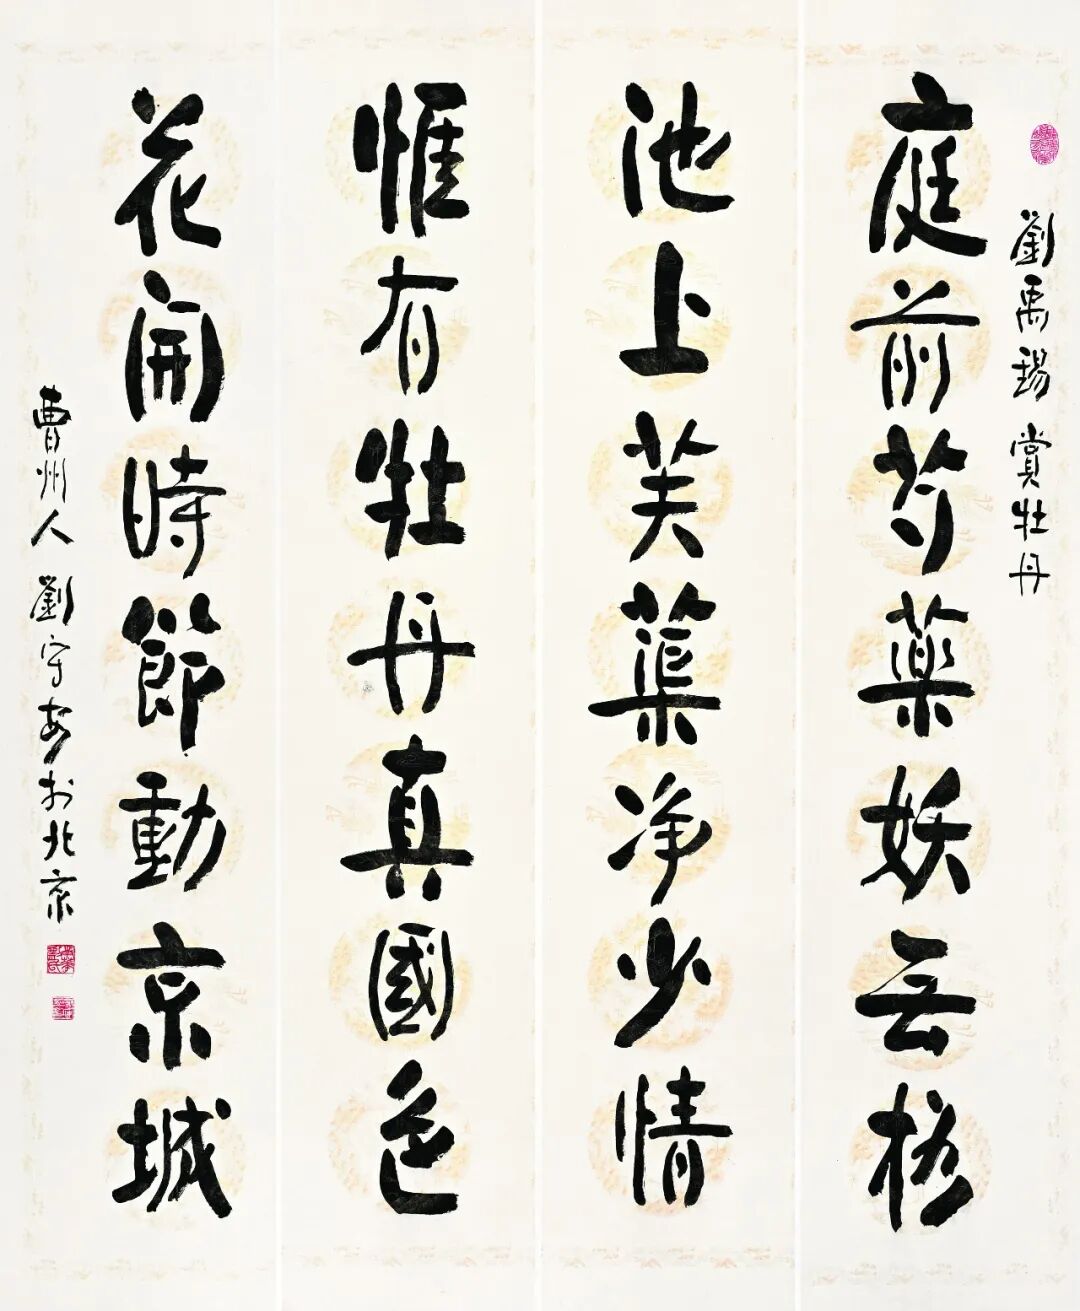 劉禹錫賞牡丹
庭前芍藥妖无格
池上芙蕖净少情
惟有牡丹真國色
花開時節動京城
曹州人劉守安於北京